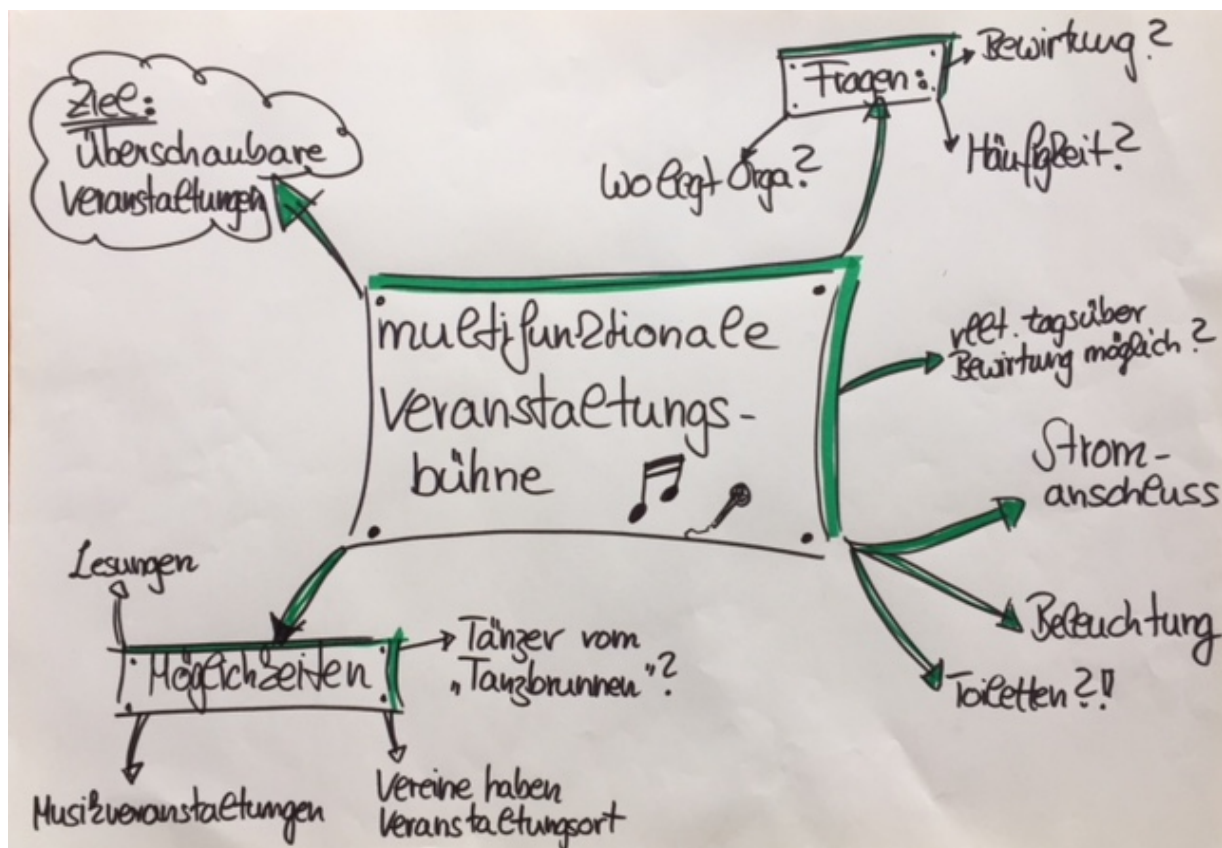 Ziel:
Überschaubare
Veranstaltungen
Fragen:
Bewirtung?
Häufigkeit?
Wo liegt Orga?
multifunktionale
Veranstaltungs-
bühne
vllt. tagsüber
Bewirtung möglich?
Strom-
anschluss
Beleuchtung
Toiletten?!!
Lesungen
Möglichkeiten
Tänzer vom
„Tanzbrunnen"?
Musikveranstaltungen
Vereine haben
Veranstaltungsort